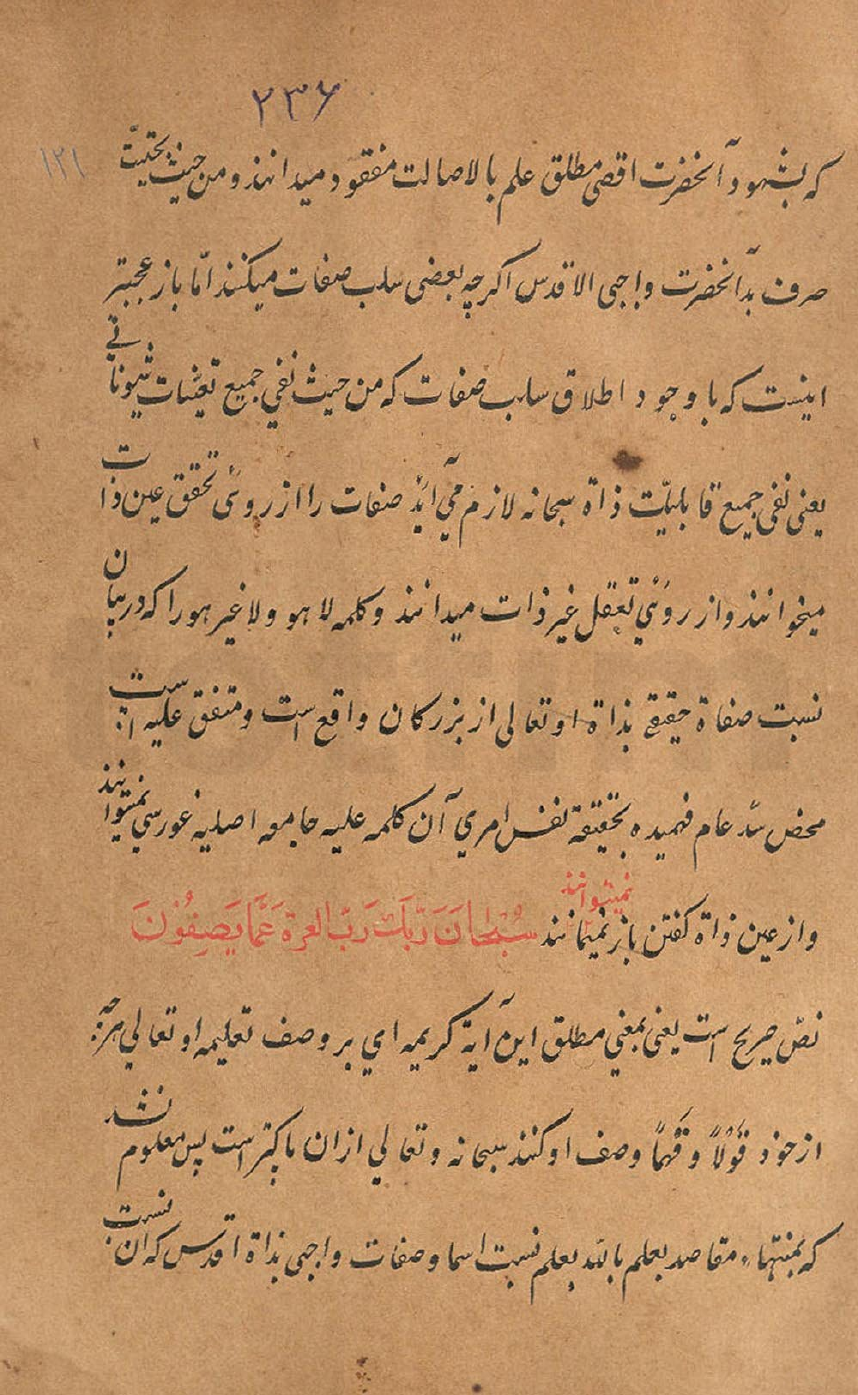 ۲۳۶
۱۲۱
که بشهود آنحضرت اقصی مطلق علم بالاصالت مفقود میدانند و من حیث بحتیت
صرف بذآنحضرت واجبی الاقدس اکرچه بعضی سلب صفات میکنند امّا باز عجبتر
اینست که با وجود اطلاق سلب صفات که من حیث نفی جمیع تعینات شیوناتی
یعنی نفی جمیع قابلیّت ذاة سبحانه لازم می آید صفات را از روی تحقق عین ذات
میخوانند و از روی تعقل غیر ذات میدانند و کلمه لا هو ولا غیر هو را که در بیان
نسبت صفاة حقیقی بذاة او تعالی از بزرکان واقع است و متفق علیه است
محض سدّ عام فهمیده بحقیقة نفس امری آن کلمه علیه جامعه اصلیه غوررسی نمیتوانند
نمیتوانند
و از عین ذاة کفتن باز نمیمانند سُبْحَانَ رَبِّكَ رَبِّ العزة عَمَّا يَصِفُونَ
نصّ صریح است یعنی بمعنی مطلق این آیة کریمه ای بر وصف تعلیمه او تعالی هرچه
از خود قَوْلاً و فَهْماً وصف او کنند سبحانه و تعالی ازان پاکتر است پس معلوم شد
که بمنتهاء مقاصد بعلم بالله بعلم نسبت اسما و صفات واجبی بذاة اقدس که آن نسبت